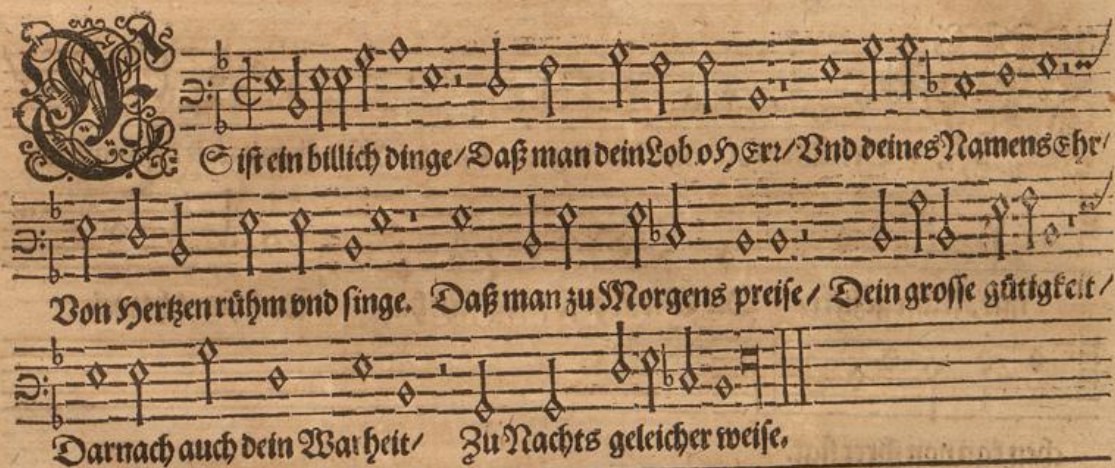 ES ist ein billich dinge/ Daß man dein Lob o HErr/ Vnd deines Namens Ehr/
Von Hertzen rühm vnd singe. Daß man zu Morgens preise/ Dein grosse gütigkeit/
Darnach auch dein Warheit/ Zu Nachts geleicher weise.